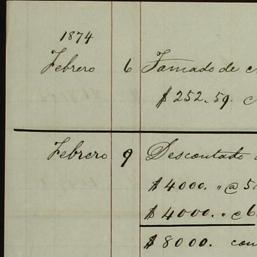 1874
Febrero 6 Tomado de
$252.59.
Febrero 9 Descontado
$4000. " @ 5
$4000. " c 6
$8000. con